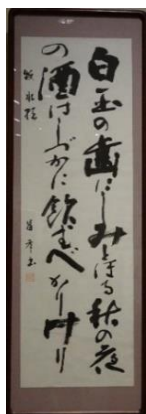 白玉の歯にしみとほる秋の夜
の酒はしづかに飲むべかりけり
牧水